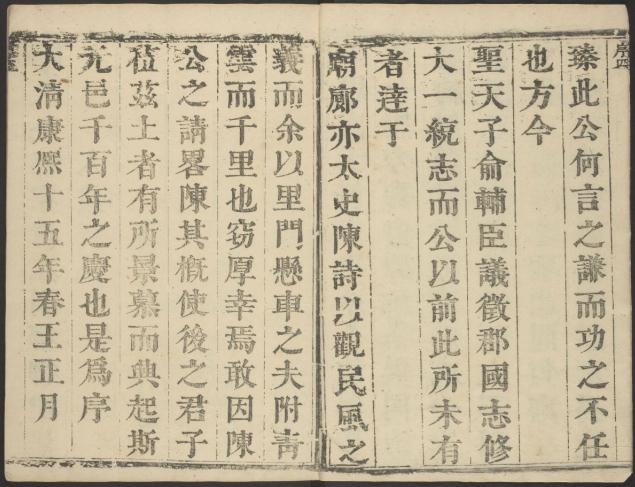 臻此公何言之謙而功之不任
也方今
聖天子俞輔臣議徵郡國志修
大一統志而公以前此所未有
者逹于
廟廊亦太史陳詩以觀民風之
義而余以里門懸車之夫附青
雲而千里也窃厚幸焉敢因陳
公之請畧陳其概使後之君子
莅茲土者有所景慕而興起斯
元邑千百年之慶也是爲序
大清康熈十五年春王正月